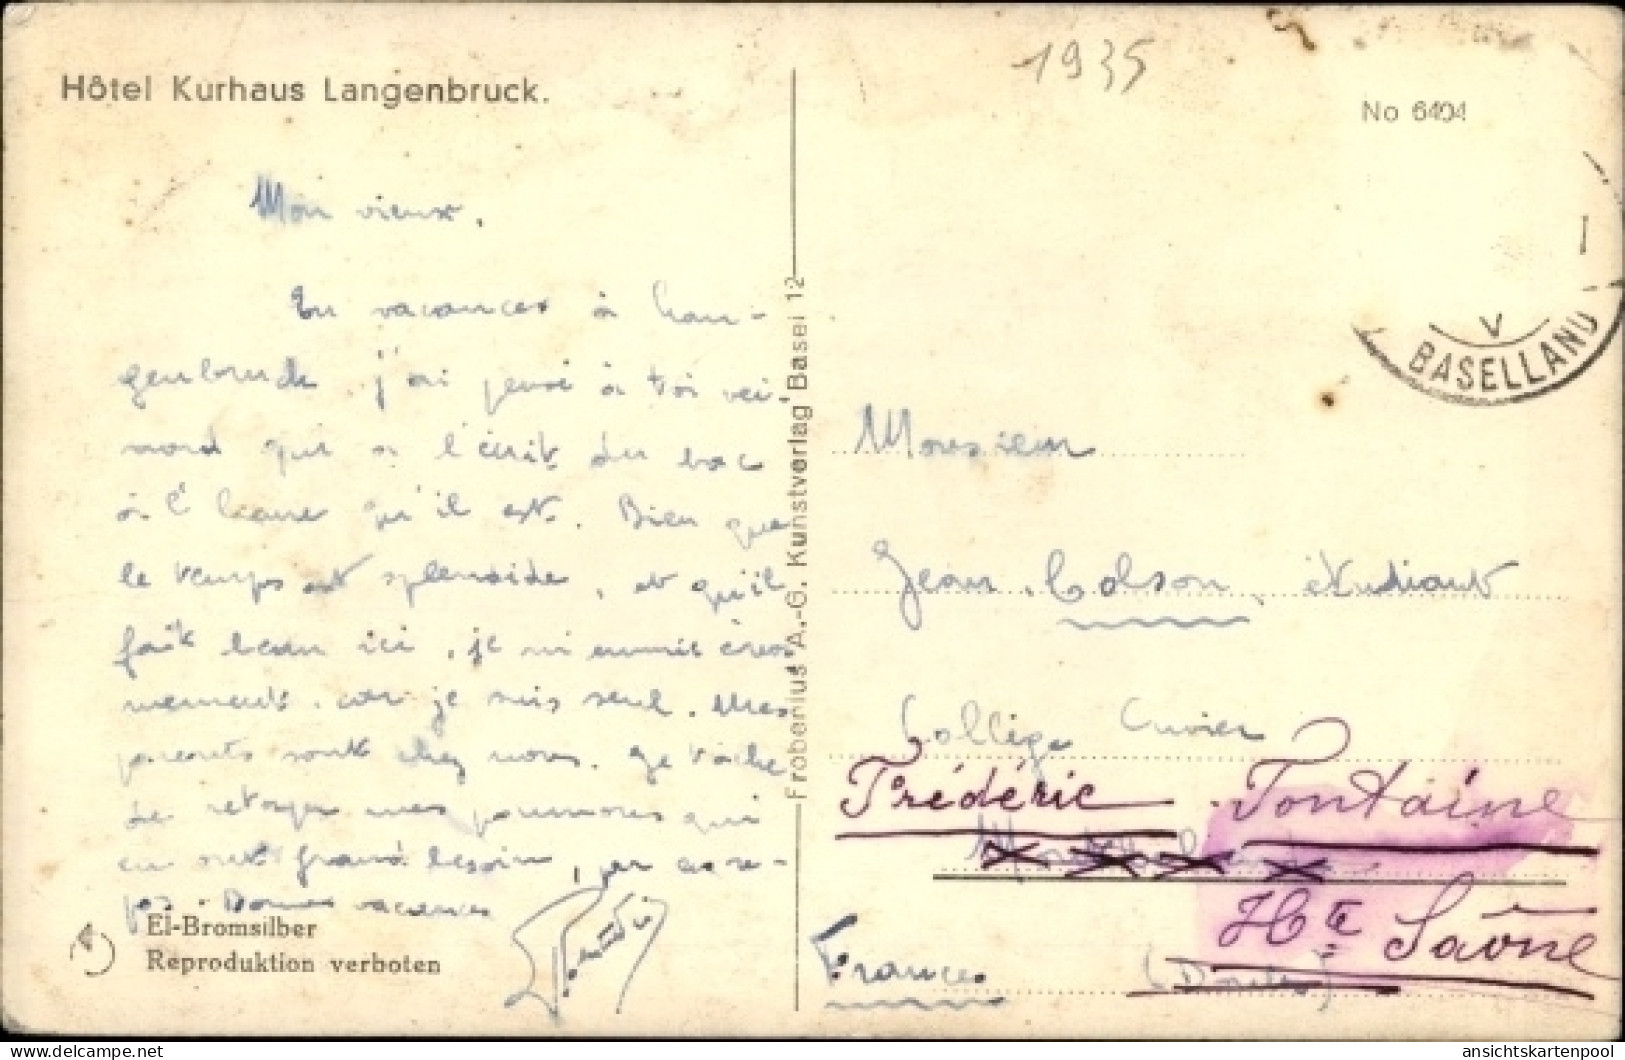 1935
Hôtel Kurhaus Langenbruck.
No 6404
BASELLAND
Mon vieux,
En vacances à Lan-
genbruck j'ai pensé à toi vei-
nard qui a l'écrit du bac
à l'heure qu'il est. Bien que
le temps est splendide, et qu'il
fait beau ici, je m'ennuie
car je suis seul. Mes
parents sont chez nous. Je tâche
de retaper mes poumons qui
en ont grand besoin, par ce re-
pos. Bonnes vacances
El-Bromsilber
Reproduktion verboten
Frobenius A.-G. Kunstverlag Basel 12
Monsieur
Jean Colson, étudiant
Collège Cuvier
Frédéric Fontaine
Hte Saône
France (Doubs)
ansichtskartenpool